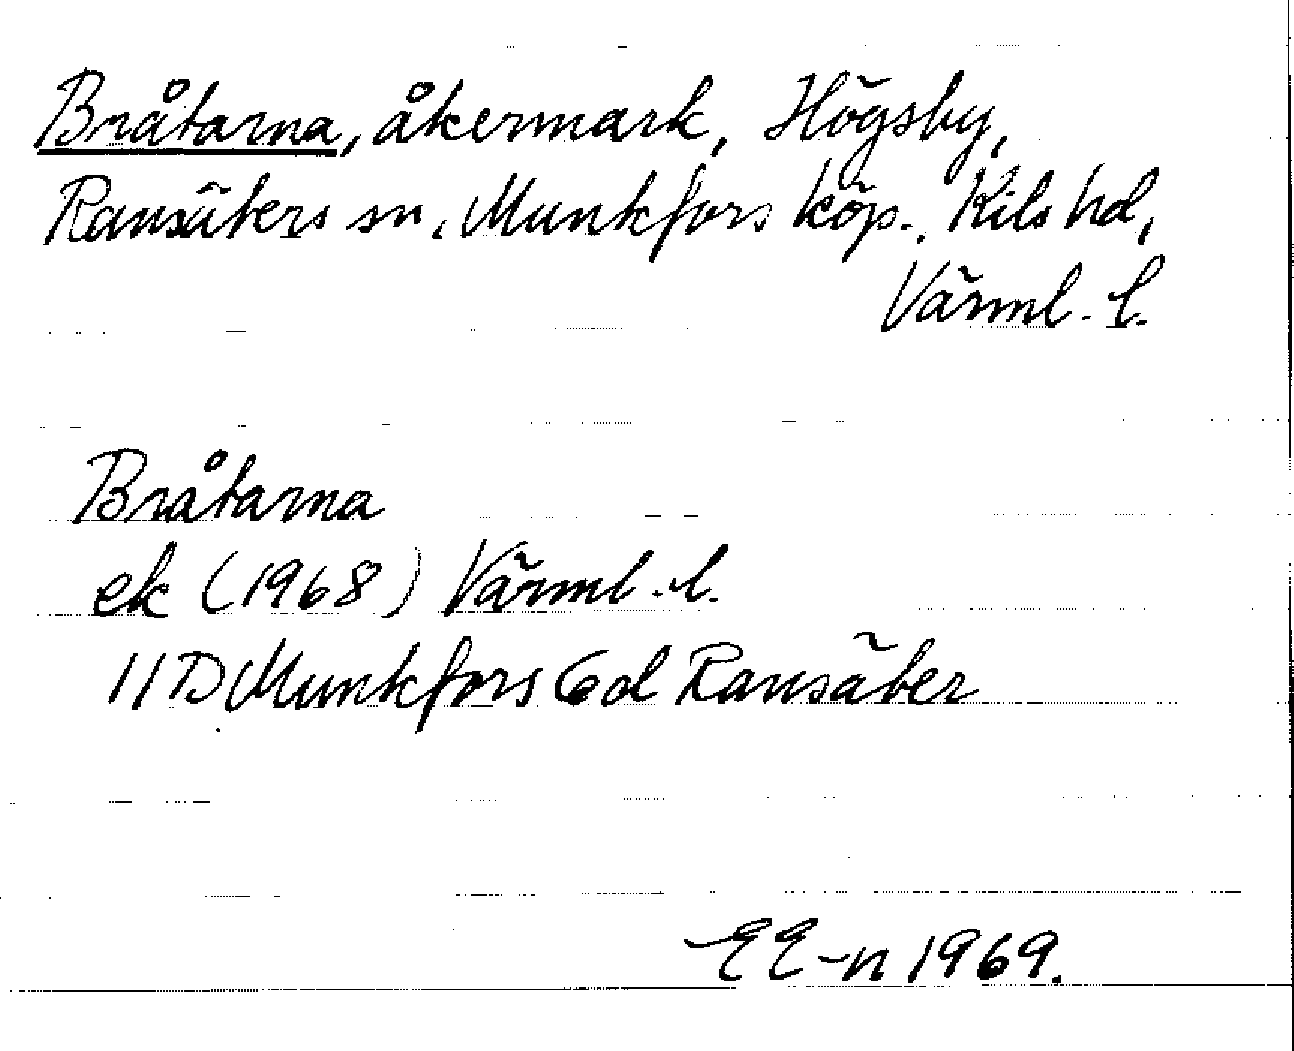 Bråtarna, åkermark, Högsby,
Ransäters sn, Munkfors köp., Kils hd,
Värml. l.
Bråtarna
ek (1968) Värml. l.
11D Munkfors 6d Ransäter
EE-n 1969.